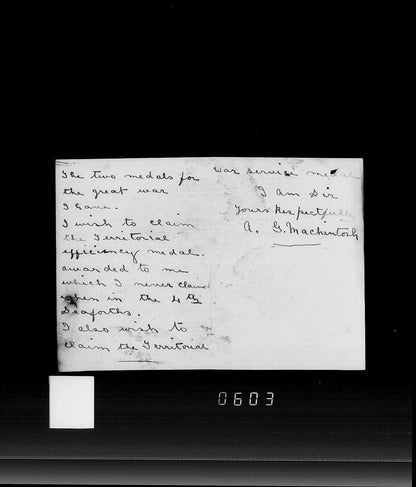 The two medals for
the great war
I have.
I wish to claim
the Territorial
efficiency medal.
awarded to me
which I never claimed
when in the 4th
Seaforths.
I also wish to
claim the Territorial
war service medal
I am Sir
yours Respectfully
A. G. Mackintosh
0603